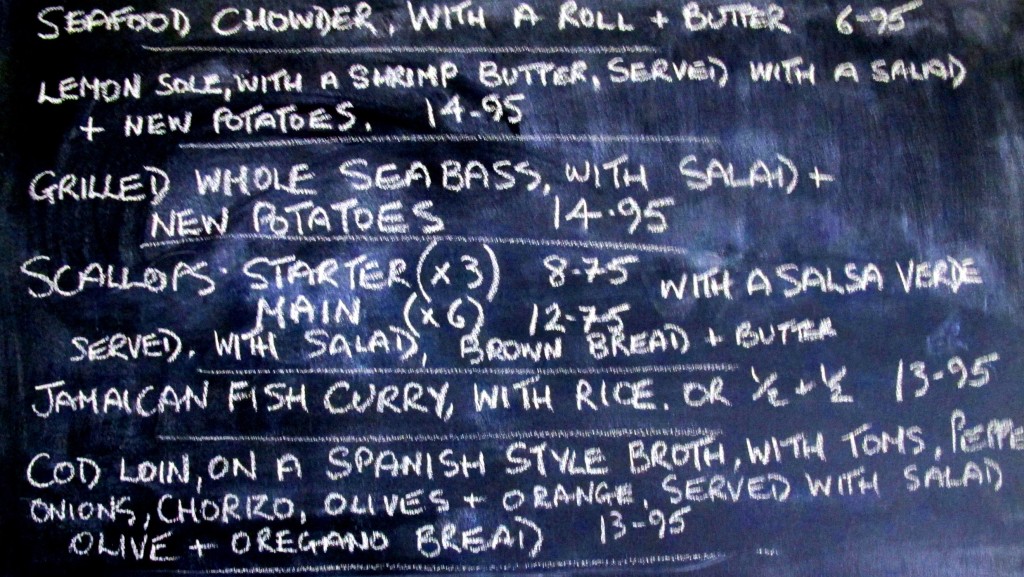 SEAFOOD CHOWDER, WITH A ROLL + BUTTER 6-95
LEMON SOLE, WITH A SHRIMP BUTTER, SERVED WITH A SALAD
+ NEW POTATOES. 14-95
GRILLED WHOLE SEA BASS, WITH SALAD +
NEW POTATOES 14.95
SCALLOPS. STARTER (x3) 8-75 WITH A SALSA VERDE
MAIN (x6) 12-75
SERVED. WITH SALAD, BROWN BREAD + BUTTER
JAMAICAN FISH CURRY, WITH RICE. OR ½ + ½ 13-95
COD LOIN, ON A SPANISH STYLE BROTH, WITH TOMS, PEPPE
ONIONS, CHORIZO, OLIVES + ORANGE, SERVED WITH SALAD
OLIVE + OREGANO BREAD 13-95